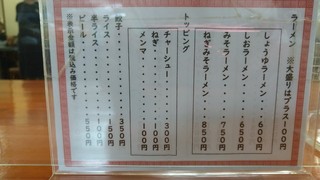 ラーメン ※大盛りはプラス100円
しょうゆラーメン・・・・600円
しおラーメン・・・・・・650円
みそラーメン・・・・・・750円
ねぎみそラーメン・・・・850円
トッピング
チャーシュー・・・300円
ねぎ・・・・・・・100円
メンマ・・・・・・100円
餃子・・・・・・・350円
ライス・・・・・・150円
半ライス・・・・・100円
ビール・・・・・・550円
※表示金額は税込み価格です